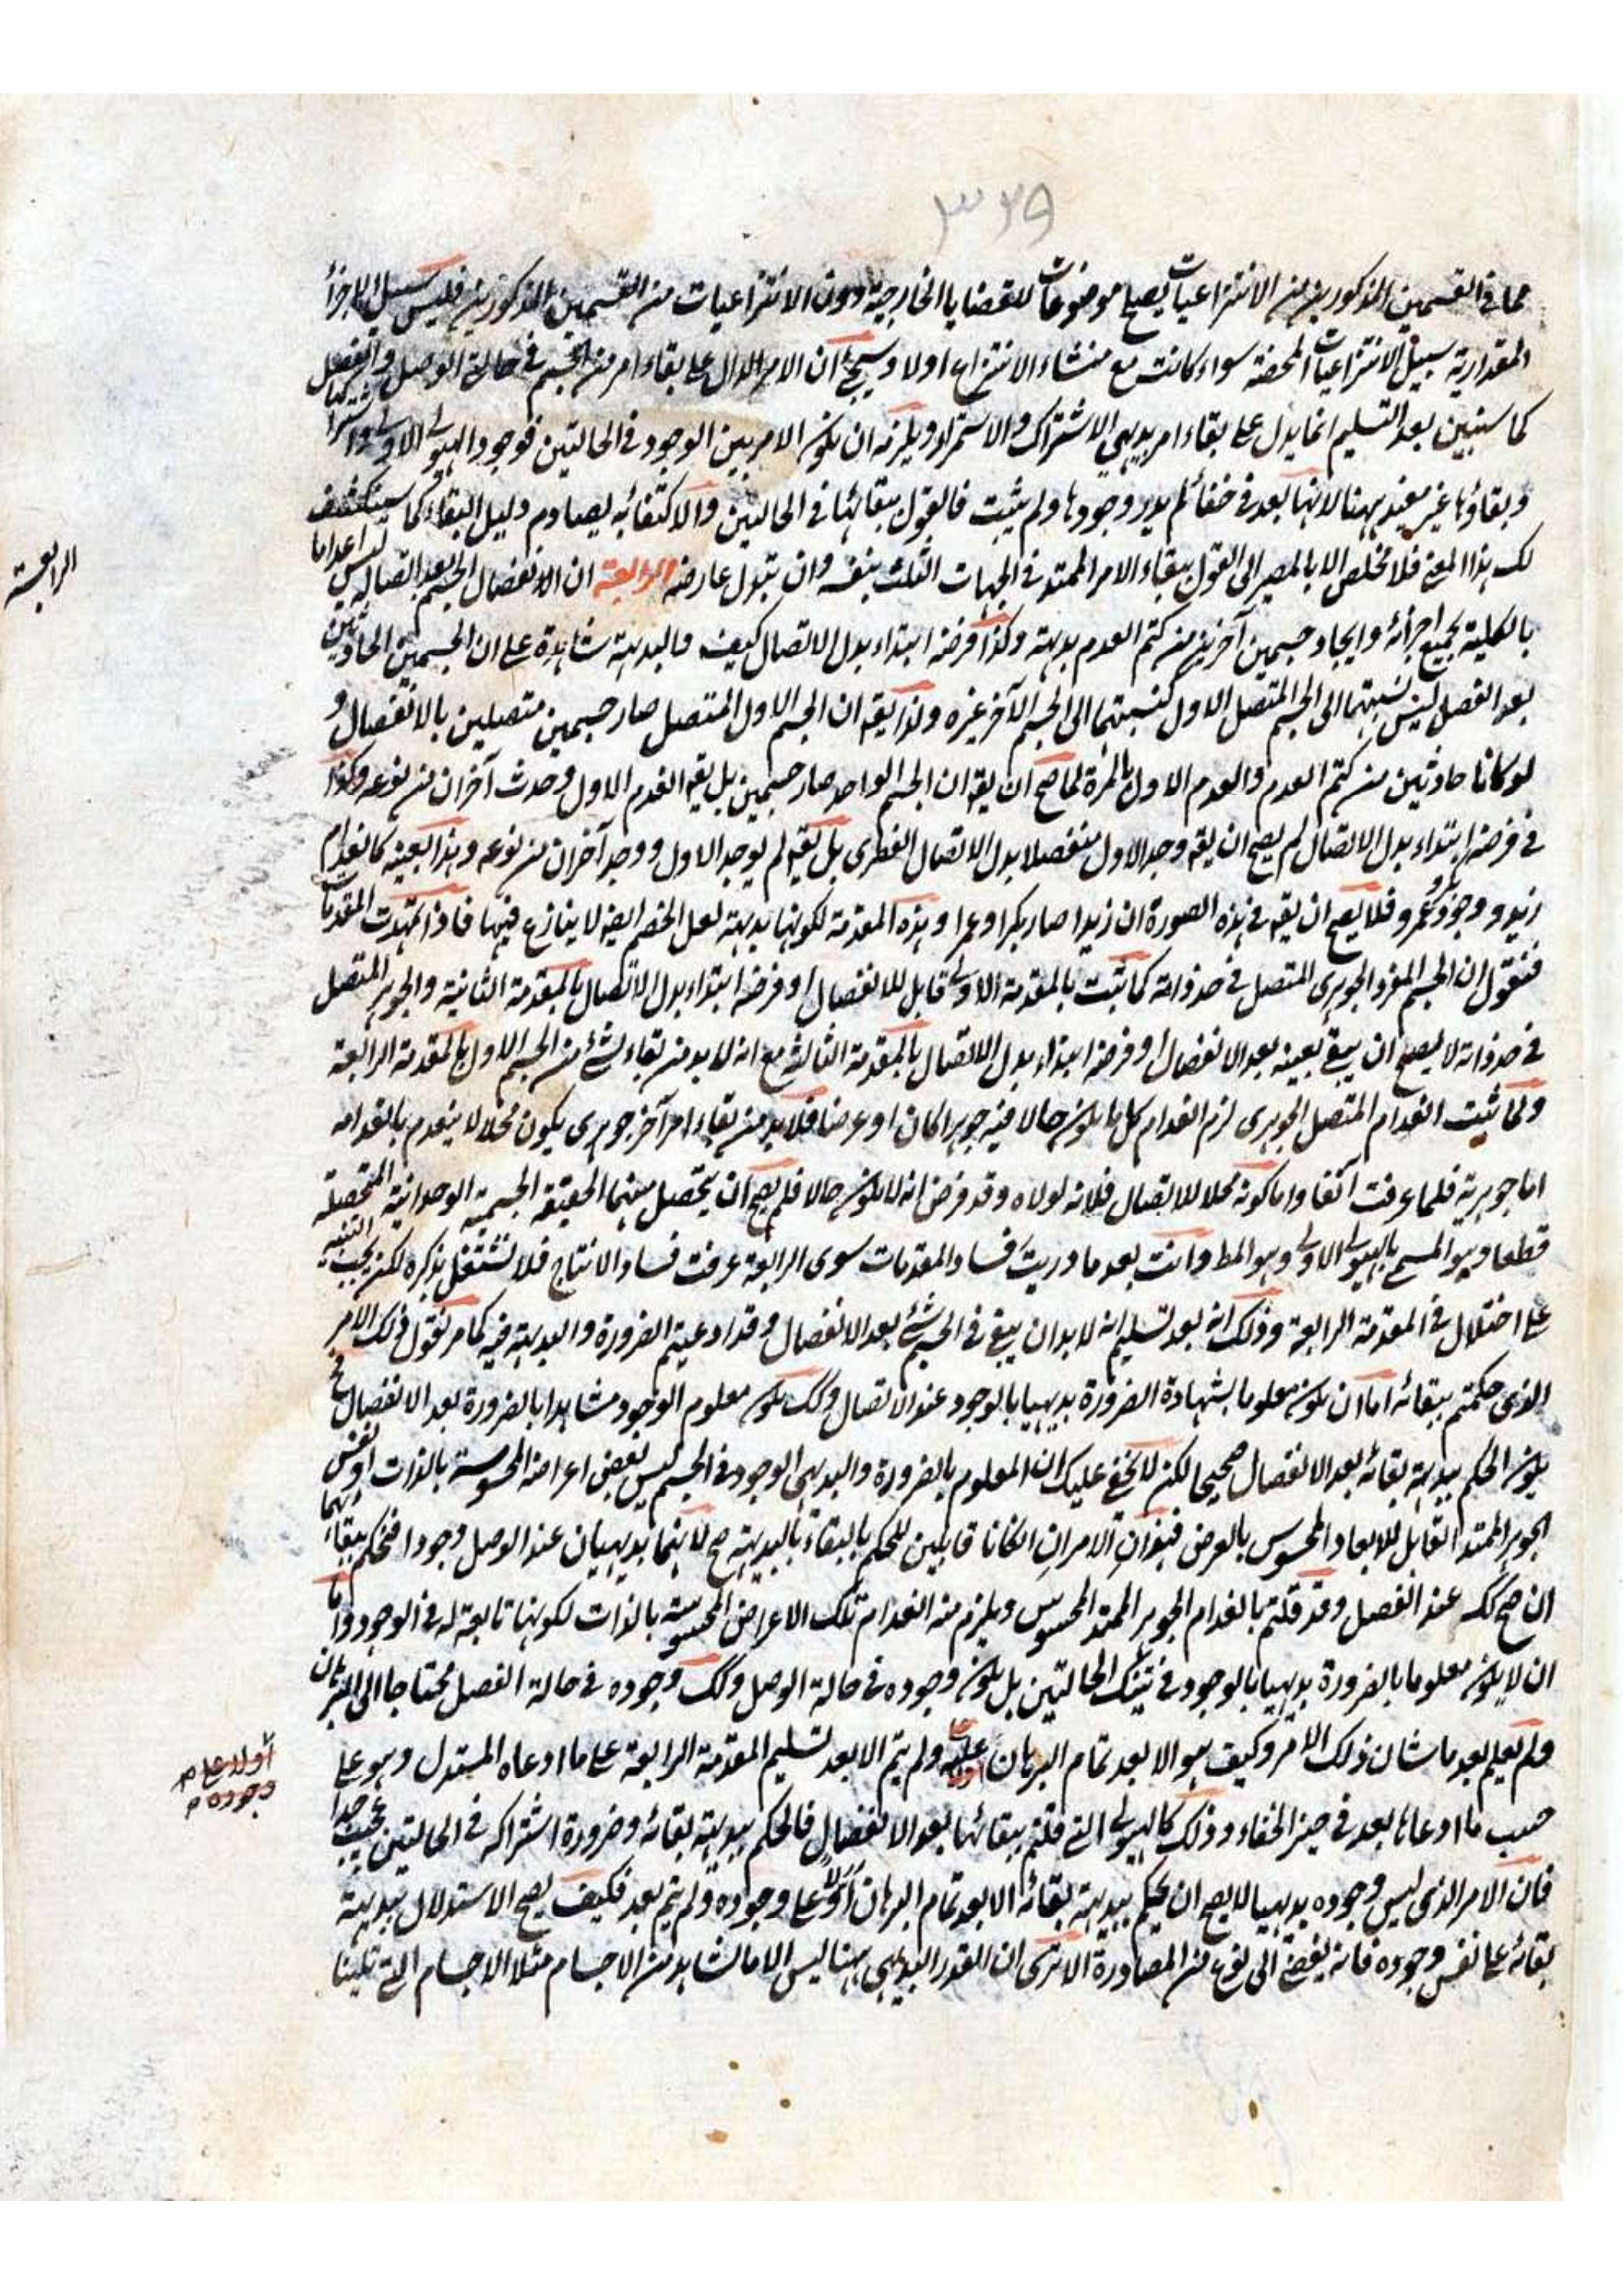 ٣٢٩
مما في القسمين المذكورين من الانتزاعيات يصلح موضوعات للقضايا الخارجية دون الانتزاعيات من القسمين المذكورين فليس سبيل الاجزأ
المقدارية سبيل الانتزاعيات المحضة سواء كانت مع منشاء الانتزاع اولا وسيجئ ان الامر الدال على بقاء امر من الجسم في حالة الوصل والفصل
كما سنبين بعد التسليم انما يدل على بقاء امر بديهي الاشتراك والاستمرار ويلزمه ان يكون الامر بين الوجود في الحالتين فوجود الهيولى الاولى واشتراكها
وبقاؤها غير مفيد ههنا لانها بعد في خفأ لم يدر وجودها ولم يثبت فالقول ببقائها في الحالتين والاكتفائه يصادم دليل البقاء كما سينكشف
لك هذا المعنى فلا مخلص الا بالمصير الى القول ببقاء الامر الممتد في الجهات الثلث بنفسه وان تبدل عارضه الرابعة ان الانفصال الجسم بعد اتصاله ليس اعداما
بالكلية بجميع اجزائه وايجاد جسمين آخرين من كتم العدم بديهة وكذا فرضه ابتداء بدل الاتصال كيف والبديهة شاهدة على ان الجسمين الحادثين
بعد الفصل ليس نسبتهما الى الجسم المتصل الاول كنسبتهما الى الجسم الآخر غيره ولذا يقه ان الجسم الاول المتصل صار جسمين متصلين بالانفصال و
لو كانا حادثين من كتم العدم والعدم الاول بالمرة لما صح ان يقه ان الجسم الواحد صار جسمين بل يقه انعدم الاول وحدث آخران من نوعه وكذا
في فرضه ابتداء بدل الاتصال لم يصح ان يقه وجد الاول منفصلا بدل الاتصال الفطرى بل يقه لم يوجد الاول ووجد آخران من نوعه وهذا بعينه كانعدام
زيد ووجود بكر وعمرو فلا يصح ان يقه في هذه الصورة ان زيدا صار بكرا وعمرا وهذه المقدمة لكونها بديهة لعل الخصم ايضه لا ينازع فيها فاذا تمهدت المقدمات
فنقول ان الجسم المفرد الجوهرى المتصل في حد ذاته كما ثبت بالمقدمة الاولى قابل للانفصال او فرضه ابتداء بدل الاتصال بالمقدمة الثانية والجوهر المتصل
في حد ذاته لا يصح ان يبقى بعينه بعد الانفصال او فرضه ابتداء بدل الاتصال بالمقدمة الثالثة مع انه لا بد من بقاء شئ من الجسم الاول بالمقدمة الرابعة
ولما ثبت انعدام المتصل الجوهرى لزم انعدام كل ما يكون حالا فيه جوهرا كان او عرضا فلا بد من بقاء امر آخر جوهرى يكون محلا لا ينعدم بانعدامه
اما جوهريته فلما عرفت آنفا واما كونه محلا للاتصال فلانه لولاه وقد فرض انه لا يكون حالا فلم يصح ان يتحصل منهما الحقيقة الجسمية الوحدانية المتحصلة
قطعا وهو المسمى بالهيولى الاولى وهو المط وانت بعد ما دريت فساد المقدمات سوى الرابعة عرفت فساد الانتاج فلا نشتغل بذكره لكن يجب التنبيه
على اختلال في المقدمة الرابعة وذلك انه بعد تسليم انه لا بد ان يبقى في الجسم شئ بعد الانفصال وقد ادعيتم الضرورة والبديهة فيه كما مر نقول ذلك الامر
الذى حكمتم ببقائه اما ان يكون معلوما بشهادة الضرورة بديهيا بالوجود عند الاتصال وكك يكون معلوم الوجود مشاهدا بالضرورة بعد الانفصال فح
يكون الحكم ببديهة بقائه بعد الانفصال صحيحا لكن لا يخفى عليك ان المعلوم بالضرورة والبديهى الوجود في الجسم ليس بعض اعراضه المحسوسة بالذات او نفس
الجوهر الممتد القابل للابعاد المحسوس بالعرض فهذان الامران الكانا قابلين للحكم بالبقاء بالبديهة صح لانهما بديهيان عند الوصل وجودا فنحكم ببقائهما
ان صح كك عند الفصل وقد قلتم بانعدام الجوهر الممتد المحسوس ويلزم منه انعدام تلك الاعراض المحسوسة بالذات لكونها تابعة له في الوجود واما
ان لا يكون معلوما بالضرورة بديهيا بالوجود في تينك الحالتين بل يكون وجوده في حالة الوصل وكك وجوده في حالة الفصل محتاجا الى البرهان
ولم يعلم بعد ما شان ذلك الامر وكيف هو الا بعد تمام البرهان عليه ولم يتم الا بعد تسليم المقدمة الرابعة على ما ادعاه المستدل وهو على
حسب ما ادعانا بعد في حيز الخفاء وذلك كالهيولى التى قلتم ببقائها بعد الانفصال فالحكم ببديهة بقائه وضرورة اشتراكه في الحالتين عجيب جدا
فان الامر الذى ليس وجوده بديهيا لا يصح ان يحكم ببديهة بقائه الا بعد تمام البرهان اولا على وجوده ولم يتم بعد فكيف يصح الاستدلال ببديهة
بقائه على نفس وجوده فانه يفضى الى نوع من المصادرة الا ترى ان القدر البديهى ههنا ليس الا ما نشاهد من الاجسام مثلا الاجسام التى تلينا
الرابعة
اولا على
وجوده